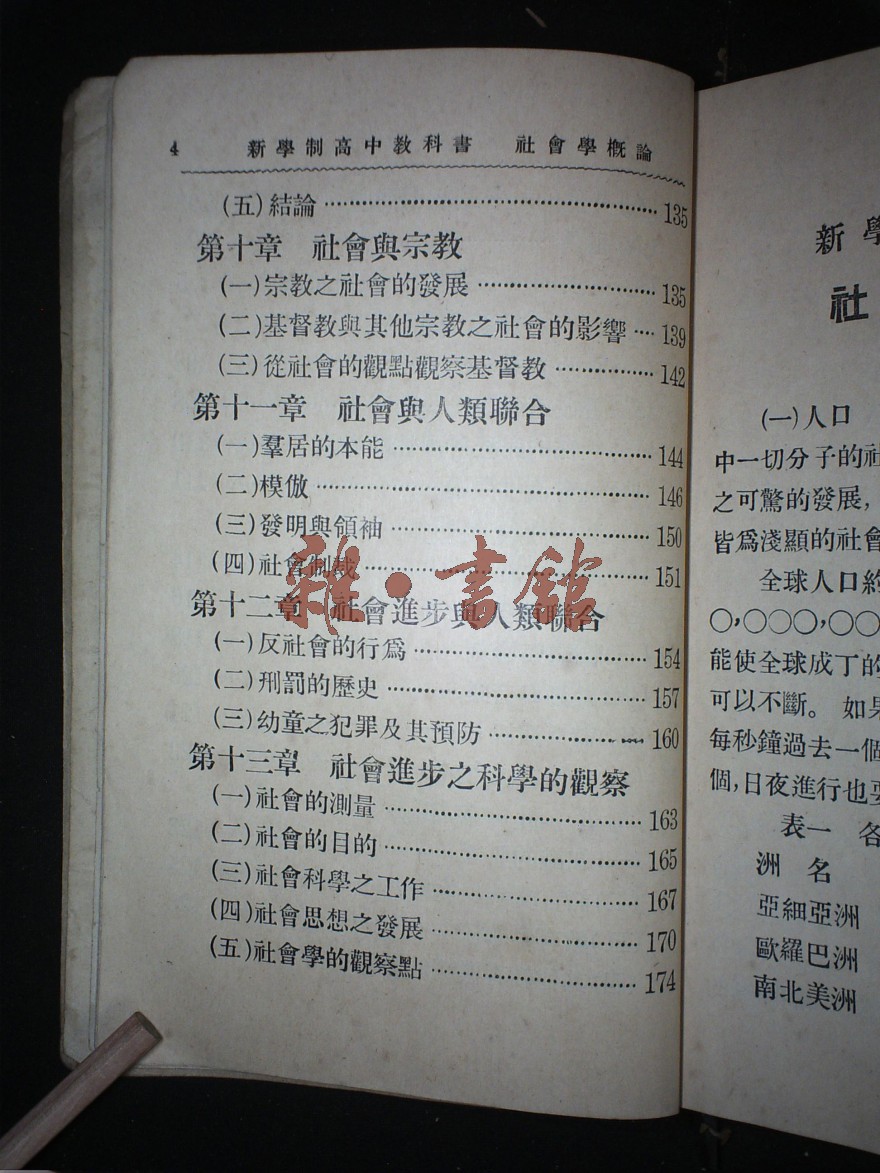 4 新學制高中教科書 社會學概論
(五)結論 135
第十章 社會與宗教
(一)宗教之社會的發展 135
(二)基督教與其他宗教之社會的影響 139
(三)從社會的觀點觀察基督教 142
第十一章 社會與人類聯合
(一)羣居的本能 144
(二)模倣 146
(三)發明與領袖 150
(四)社會制裁 151
第十二章 社會進步與人類聯合
(一)反社會的行爲 154
(二)刑罰的歷史 157
(三)幼童之犯罪及其預防 160
第十三章 社會進步之科學的觀察
(一)社會的測量 163
(二)社會的目的 165
(三)社會科學之工作 167
(四)社會思想之發展 170
(五)社會學的觀察點 174
雜·書館
新學
社
(一)人口
中一切分子的社
之可驚的發展,
皆爲淺顯的社會
全球人口約
〇,〇〇〇,〇〇
能使全球成丁的
可以不斷。 如果
每秒鐘過去一個
個,日夜進行也要
表一 各
洲 名
亞細亞洲
歐羅巴洲
南北美洲